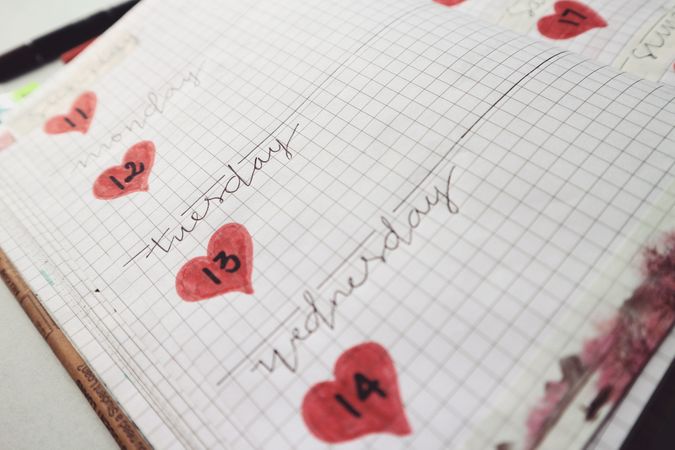 11
monday
12
tuesday
13
wednesday
14
17